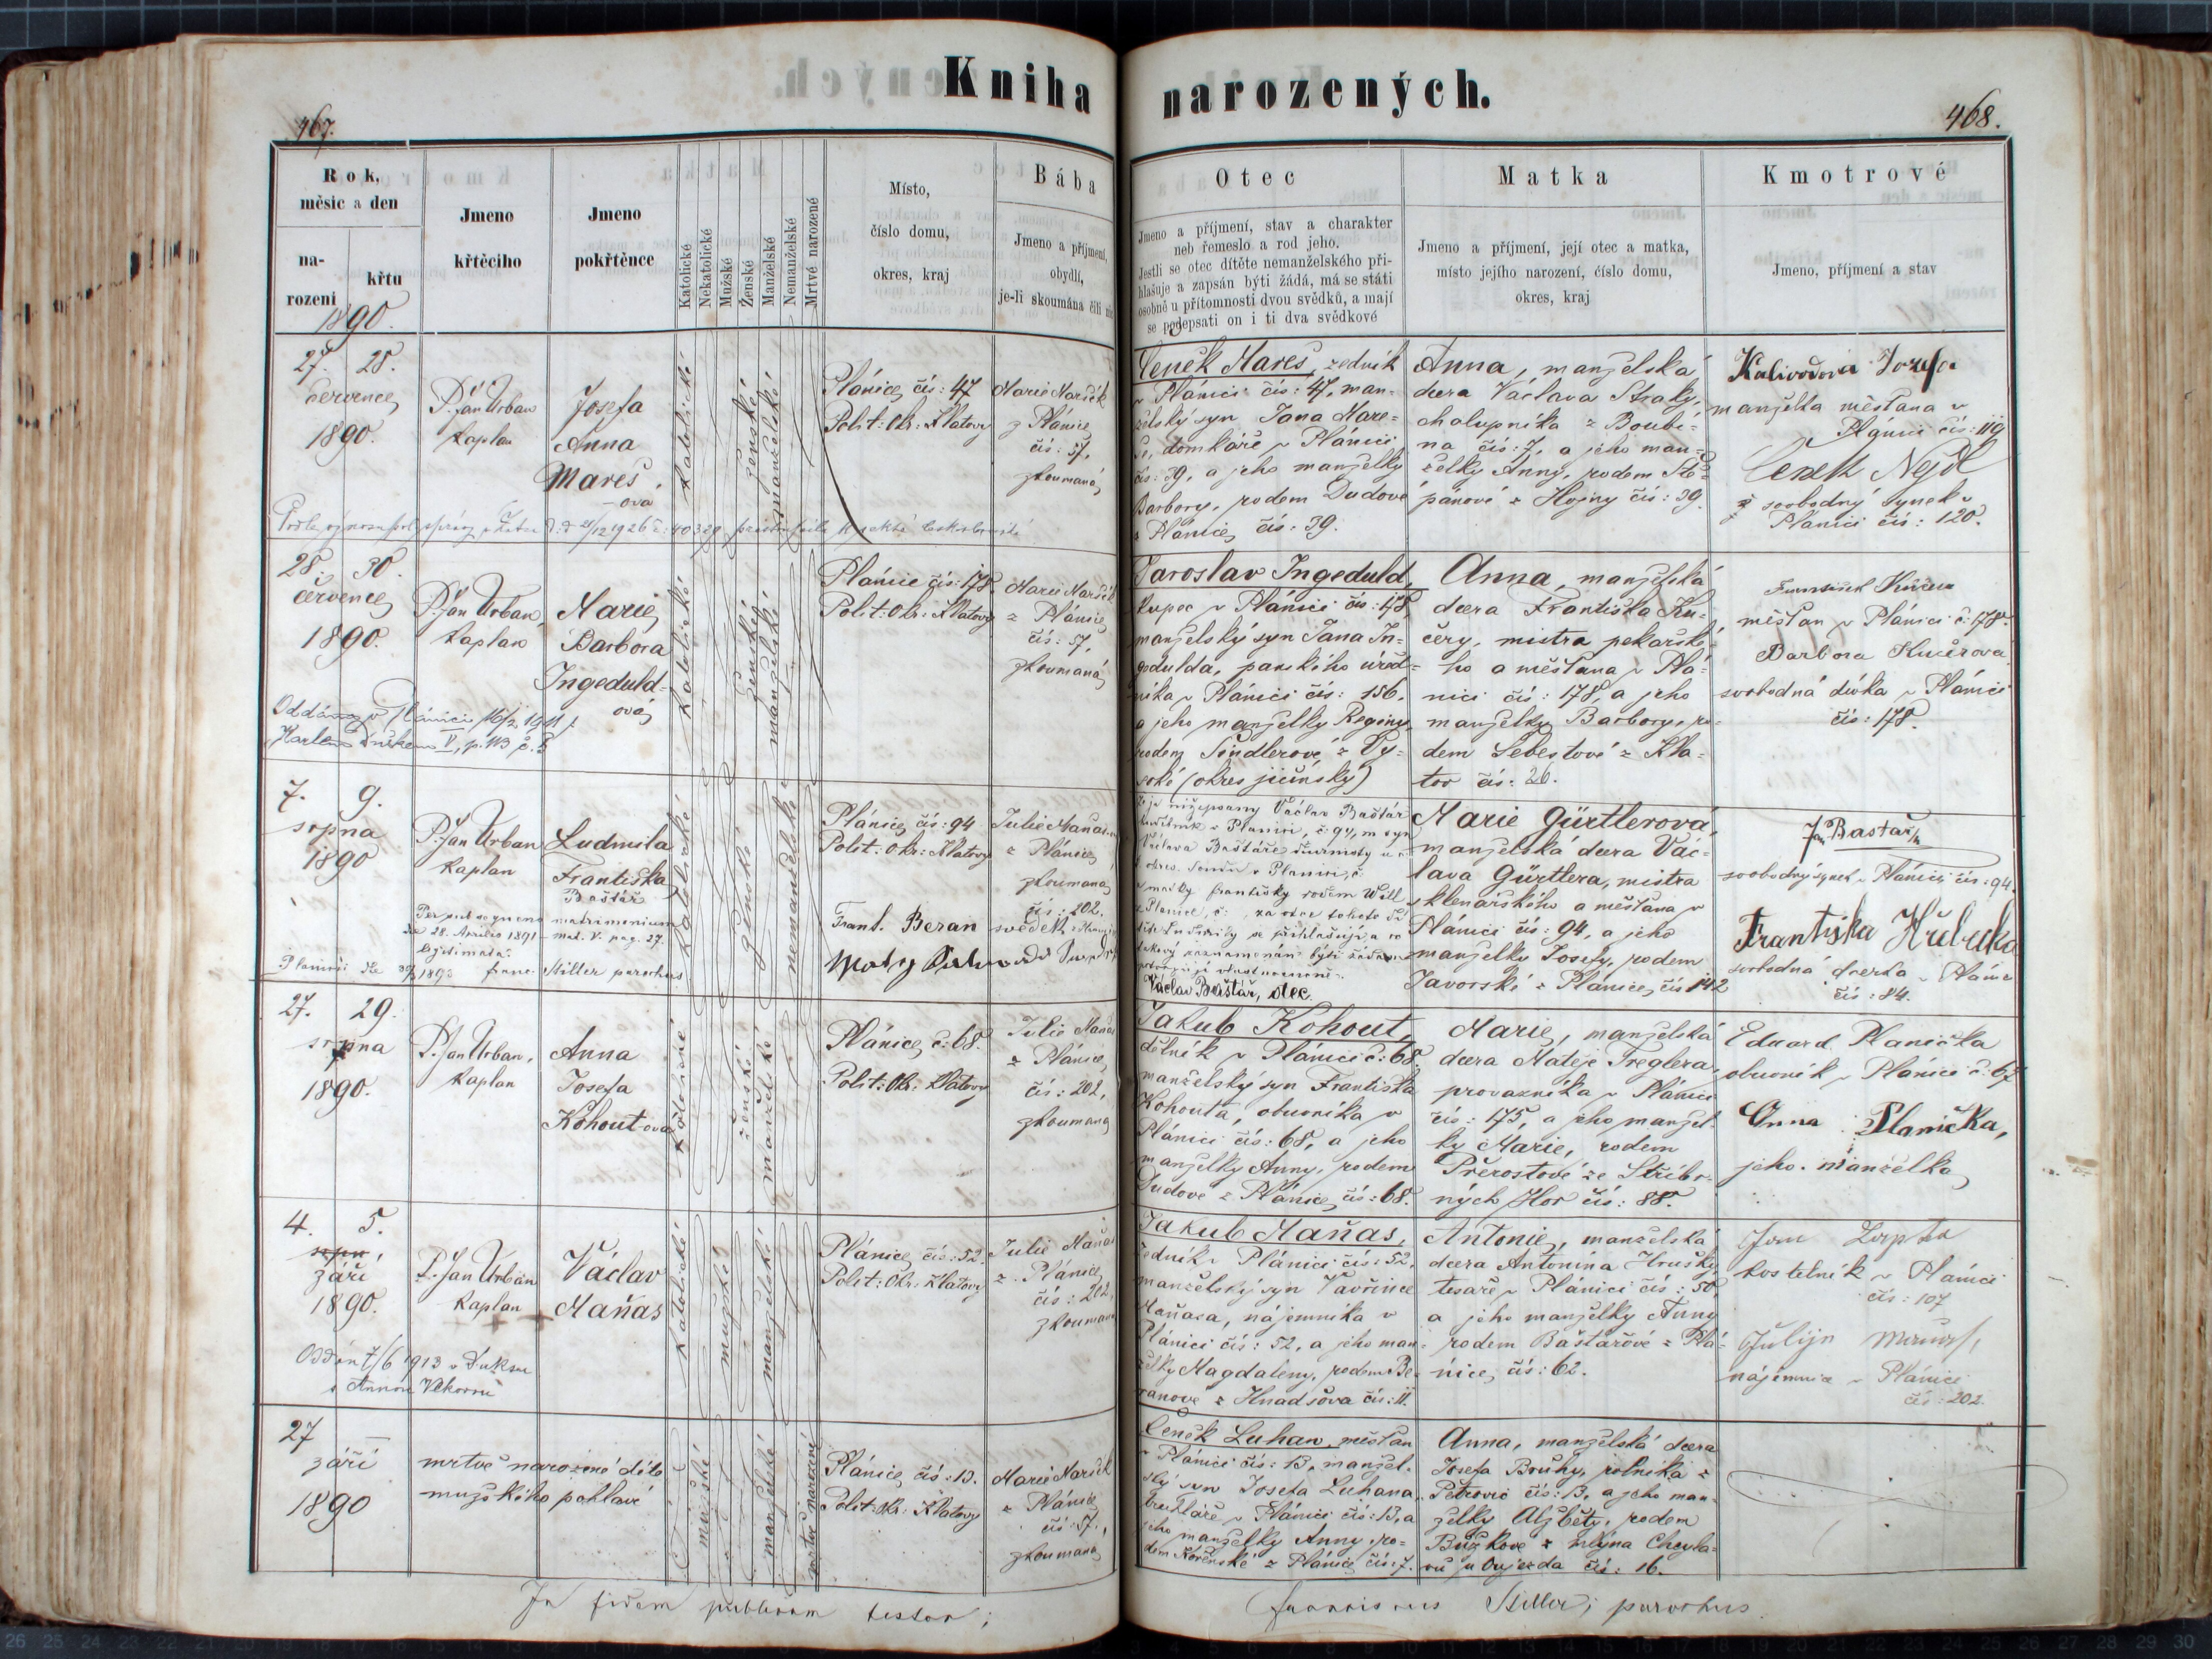 Kniha narozených.
467.
468.
Rok,
měsíc a den
na-
rození
křtu
1890.
Jmeno
křtěcího
Jmeno
pokřtěnce
Katolické
Nekatolické
Mužské
Ženské
Manželské
Nemanželské
Mrtvé narozené
Místo,
číslo domu,
okres, kraj
Bába
Jmeno a příjmení,
obydlí,
je-li skoumána čili nic
Otec
Jmeno a příjmení, stav a charakter
neb řemeslo a rod jeho.
Jestli se otec dítěte nemanželského při-
hlašuje a zapsán býti žádá, má se státi
osobně u přítomnosti dvou svědků, a mají
se podepsati on i ti dva svědkové
Matka
Jmeno a příjmení, její otec a matka,
místo jejího narození, číslo domu,
okres, kraj
Kmotrové
Jmeno, příjmení a stav
27. 28.
července
1890.
P. Jan Urban
kaplan
Josefa
Anna
Mareš
-ova
katolické
ženské
manželské
Plánice, čís: 47
Polit: Okr: Klatovy
Marie Maršík
z Plánice
čís: 57,
zkoumaná
Čeněk Mareš, zedník
v Plánici čís: 47, man-
želský syn Jana Mare-
še, domkáře v Plánici
čís: 39, a jeho manželky
Barbory, rodem Dudové
z Plánice, čís: 39.
Anna, manželská
dcera Václava Straky,
chalupníka z Boubí-
na čís: 7, a jeho man-
želky Anny, rodem Ště-
pánové z Hojny čís: 39.
Kalivodová Josefa
manželka měšťana v
Plánici čís: 119
Čeněk Nejdl
svobodný synek v
Plánici čís: 120.
28. 30.
července
1890.
P. Jan Urban,
kaplan
Marie
Barbora
Ingeduld-
ová
Oddána v Plánici 16/2 1911 s
katolické
ženské
manželské
Plánice čís: 178
Polit: Okr: Klatovy
Marie Maršík
z Plánice
čís: 57,
zkoumaná
Jaroslav Ingeduld,
kupec v Plánici čís: 178,
manželský syn Jana In-
gedulda, panského úřed-
níka v Plánici čís: 156,
a jeho manželky Reginy,
rodem Šindlerové z Vy-
soké (okres jičínský)
Anna, manželská
dcera Františka Ku-
čery, mistra pekařské-
ho a měšťana v Plá-
nici čís: 178, a jeho
manželky Barbory, ro-
dem Šebestové z Kla-
tov čís: 26.
František Kučera
měšťan v Plánici č: 178.
Barbora Kučerova
svobodná dívka v Plánici
čís: 178.
7. 9.
srpna
1890
P. Jan Urban
kaplan
Ludmila
Františka
Baštář
Per subsequens matrimonium
de 28. Aprilis 1891 - mat. V. pag. 27.
legitimata.
franc. Stiller parochus
katolické
ženské
nemanželské
Plánice, čís: 94
Polit: okr: Klatovy
Frant. Beran svědek
Julie Maňas
z Plánice
zkoumaná
čís: 202.
Já nížepsaný Václav Baštář
v Plánici, č: 94, m syn
Václava Baštáře
matky Františky rodem Will
z Plánice
za otce tohoto
se přihlašuji a co
takový zaznamenán býti žádám
Václav Baštář, otec.
Marie Gürtlerová,
manželská dcera Vác-
lava Gürtlera, mistra
sklenářského a měšťana v
Plánici čís: 94, a jeho
manželky Josefy, rodem
Javorské z Plánice, čís 142
Jan Baštář
svobodný synek v Plánici, čís: 94.
Františka
svobodná dcerka v Plánici
čís: 84.
27. 29.
srpna
1890.
P. Jan Urban,
kaplan
Anna
Josefa
Kohout-ova
katolické
ženské
manželské
Plánice, č: 68.
Polit: Okr: Klatovy
Julie Maňas
z Plánice
čís: 202,
zkoumaná
Jakub Kohout,
dělník v Plánici č: 68,
manželský syn Františka
Kohouta, obuvníka v
Plánici čís: 68, a jeho
manželky Anny, rodem
Dudové z Plánice, čís: 68.
Marie, manželská
dcera Matěje Treglera,
provazníka v Plánici
čís: 175, a jeho manžel-
ky Marie, rodem
Přerostové ze Stříbr-
ných Hor čís: 88.
Eduard Planička
obuvník v Plánici č: 67
Anna Planička,
jeho manželka
4. 5.
září
1890.
P. Jan Urban
kaplan
Václav
Maňas
Oddán 7/6 1913 v Duksu
s Annou
katolické
mužské
manželské
Plánice, čís: 52.
Polit: Okr: Klatovy
Julie Maňas
z Plánice
čís: 202,
zkoumaná
Jakub Maňas,
zedník v Plánici čís: 52,
manželský syn Vavřince
Maňasa, nájemníka v
Plánici čís: 52, a jeho man-
želky Magdaleny, rodem Be-
ranové z Hnačova čís: 11.
Antonie, manželská
dcera Antonína Hrušky,
tesaře v Plánici čís: 50,
a jeho manželky Anny
rodem Baštářové z Plá-
nice, čís: 62.
kostelník v Plánici
čís: 107
nájemnice v Plánici
čís: 202.
27 —
září
1890
mrtvě narozené dítě
mužského pohlaví
mužské
manželské
mrtvě narozené
Plánice, čís: 13.
Polit: okr: Klatovy
Marie Maršík
z Plánice
čís: 57,
zkoumaná
Čeněk Luhan, měšťan
v Plánici čís: 13, manžel-
ský syn Josefa Luhana,
truhláře v Plánici čís: 13, a
jeho manželky Anny, ro-
dem Kořenské z Plánice, čís: 7.
Anna, manželská dcera
Josefa Bouhy, rolníka z
Petrovic čís: 13, a jeho man-
želky Alžběty, rodem
čís: 16.
In fidem publicam testor;
Franciscus Stiller, parochus.